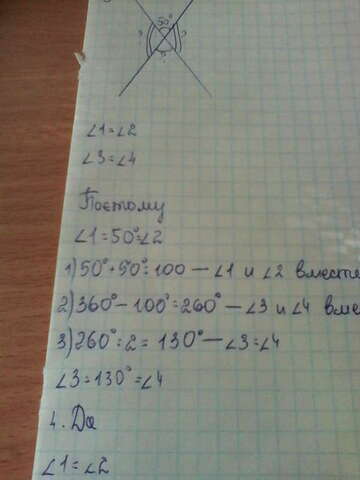 50°
? ?
?
∠1=∠2
∠3=∠4
Поэтому
∠1=50°=∠2
1) 50°+50°=100 — ∠1 и ∠2 вместе
2) 360°-100°=260° — ∠3 и ∠4 вме
3) 260°:2=130° — ∠3=∠4
∠3=130°=∠4
4. Да
∠1=∠2